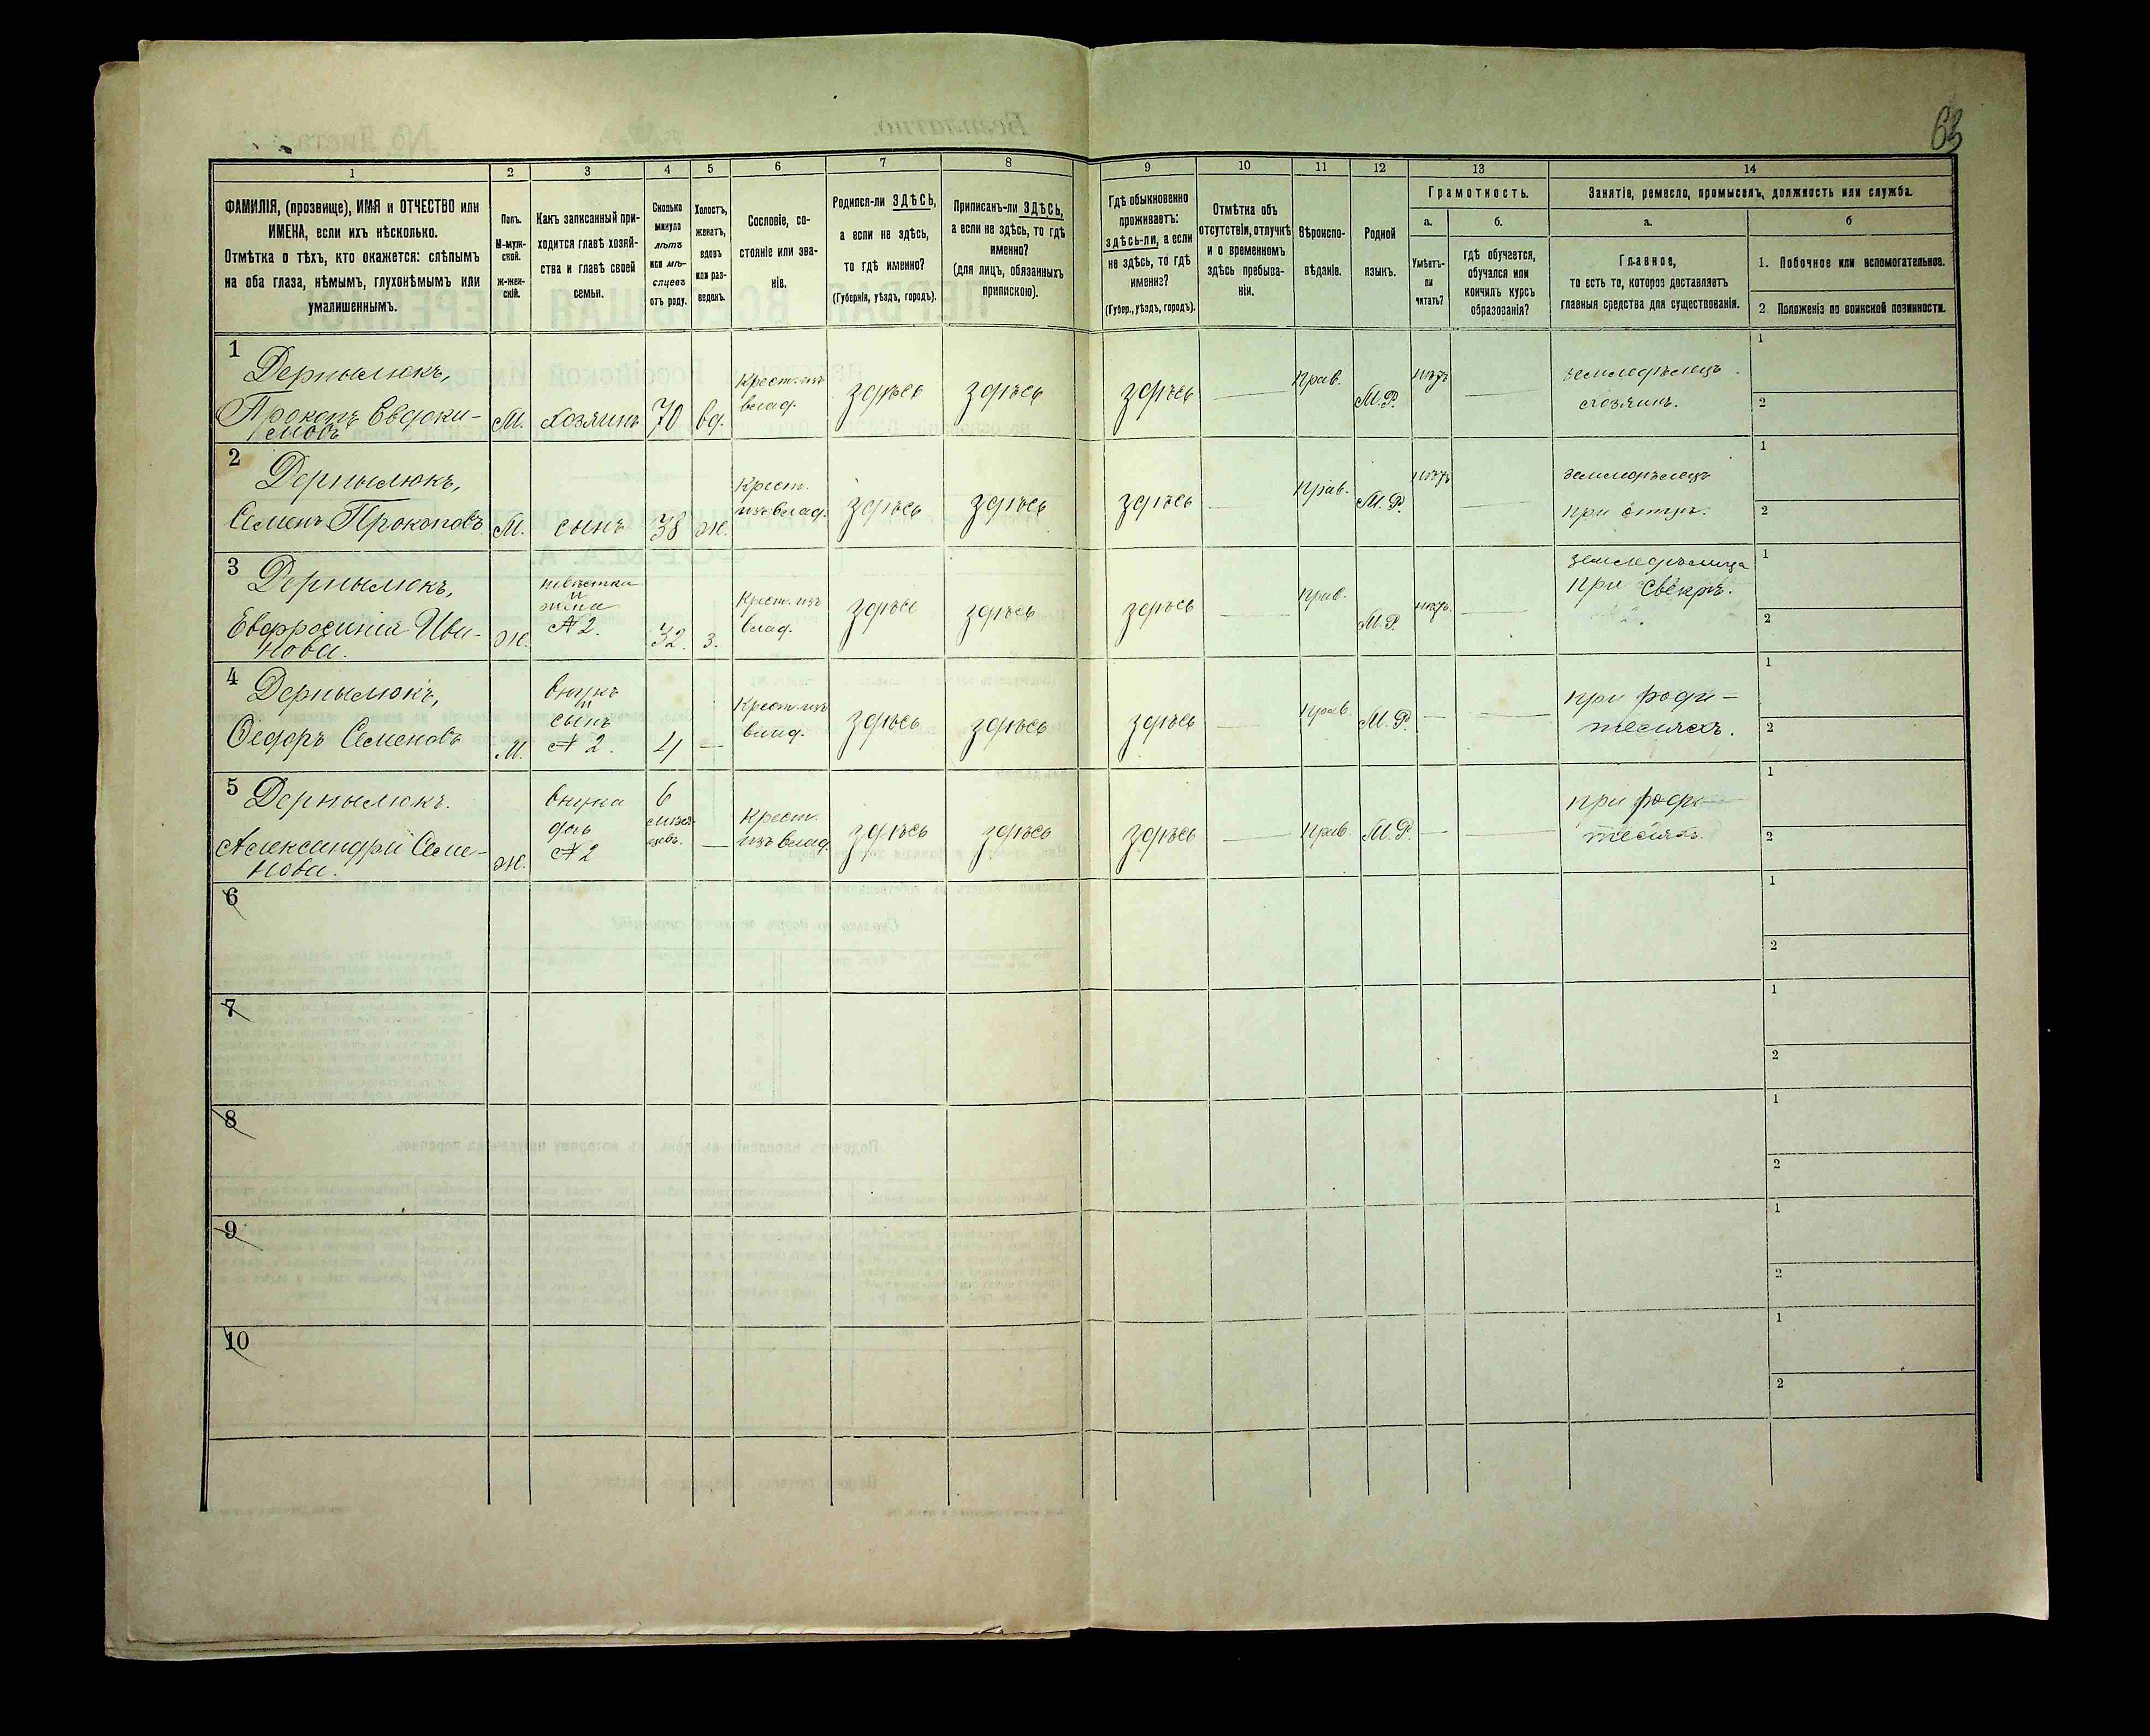 63
1
2
3
4
5
6
7
8
9
10
11
12
13
14
ФАМИЛІЯ, (прозвище), ИМЯ и ОТЧЕСТВО или
ИМЕНА, если ихъ нѣсколько.
Отмѣтка о тѣхъ, кто окажется: слѣпымъ
на оба глаза, нѣмымъ, глухонѣмымъ или
умалишеннымъ.
Полъ.
М-муж-
ской.
ж-жен-
скій.
Какъ записанный при-
ходится главѣ хозяй-
ства и главѣ своей
семьи.
Сколько
минуло
лѣтъ
или мѣ-
сяцевъ
отъ роду.
Холостъ,
женатъ,
вдовъ
или раз-
веденъ.
Сословіе, со-
стояніе или зва-
ніе.
Родился-ли ЗДѢСЬ,
а если не здѣсь,
то гдѣ именно?
(Губернія, уѣздъ, городъ).
Приписанъ-ли ЗДѢСЬ,
а если не здѣсь, то гдѣ
именно?
(для лицъ, обязанныхъ
припискою).
Гдѣ обыкновенно
проживаетъ:
здѣсь-ли, а если
не здѣсь, то гдѣ
именно?
(Губер., уѣздъ, городъ).
Отмѣтка объ
отсутствіи, отлучкѣ
и о временномъ
здѣсь пребыва-
ніи.
Вѣроиспо-
вѣданіе.
Родной
языкъ.
Грамотность.
а.
Умѣетъ-
ли
читать?
б.
гдѣ обучается,
обучался или
кончилъ курсъ
образованія?
Занятіе, ремесло, промыселъ, должность или служба.
а.
Главное,
то есть то, которое доставляетъ
главныя средства для существованія.
б
1. Побочное или вспомогательное.
2 Положеніе по воинской повинности.
1
Дернылюкъ,
Прокопъ Евдоки-
мовъ
М.
хозяинъ
70
вд.
Крест. изъ
влад.
здѣсь
здѣсь
здѣсь
Прав.
М.Р.
нѣтъ
земледѣлецъ
хозяинъ.
1
2
2
Дернылюкъ,
Семенъ Прокоповъ
М.
сынъ
38
ж.
Крест.
изъ влад.
здѣсь
здѣсь
здѣсь
Прав.
М.Р.
нѣтъ
земледѣлецъ
при отцѣ.
1
2
3
Дернылюкъ,
Евфросинія Ива-
нова.
ж.
невѣстка
и
жена
№ 2.
32.
з.
Крест. изъ
влад.
здѣсь
здѣсь
здѣсь
Прав.
М.Р.
нѣтъ.
земледѣлица
при свекрѣ.
1
2
4
Дернылюкъ,
Ѳедоръ Семеновъ
М.
внукъ
и
сынъ
№ 2.
4
Крест. изъ
влад.
здѣсь
здѣсь
здѣсь
Прав.
М.Р.
при роди-
теляхъ.
1
2
5
Дернылюкъ.
Александра Семе-
нова.
ж.
внука
дочь
№ 2
6
мѣся-
цевъ.
Крест.
изъ влад.
здѣсь
здѣсь
здѣсь
Прав.
М.Р.
при роди-
теляхъ.
1
2
6
1
2
7
1
2
8
1
2
9
1
2
10
1
2